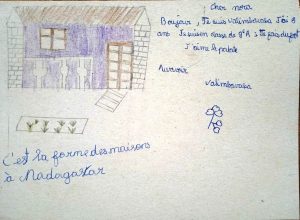 Cher nora
Bonjour, Je suis valimbavaka J'ai 8
ans Je suis en classe de 9ª A
J'aime la patate
Aurevoir
valimbavaka
C'est la forme des maisons
à Madagaskar